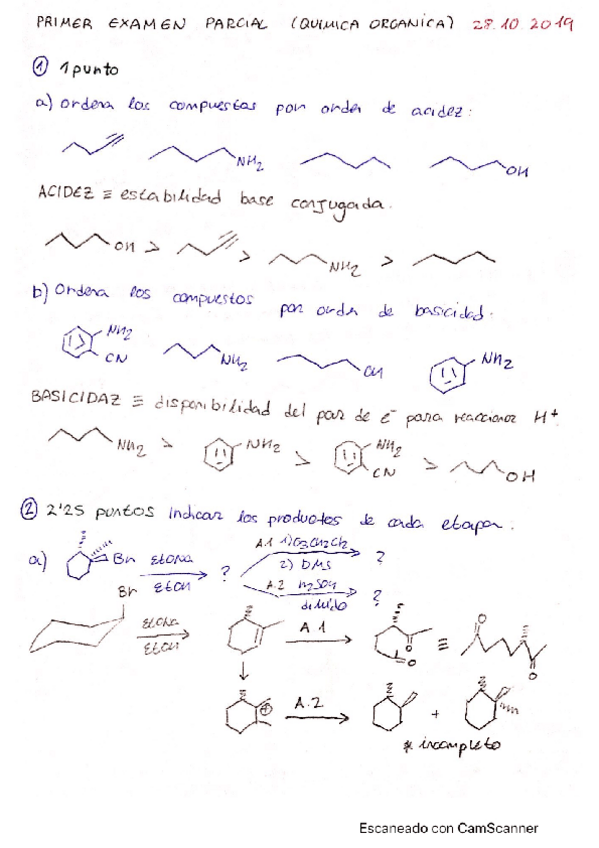 PRIMER EXAMEN PARCIAL (QUIMICA ORGANICA) 28.10.2019
① 1 punto
a) Ordena los compuestos por orden de acidez:
NH2 OH
ACIDEZ ≡ estabilidad base conjugada.
OH > > NH2 >
b) Ordena los compuestos por orden de basicidad.
NH2 CN NH2 OH NH2
BASICIDAZ ≡ disponibilidad del par de e- para reaccionar H+
NH2 > NH2 > NH2 CN > OH
② 2'25 puntos Indicar los productos de cada etapa.
a) Br EtONa EtOH ? A.1 1) O3, CH2Cl2 2) DMS ?
A.2 H2SO4 diluido ?
Br EtONa EtOH A.1 O O ≡ O O
⊕ A.2 +
* incompleto
Escaneado con CamScanner